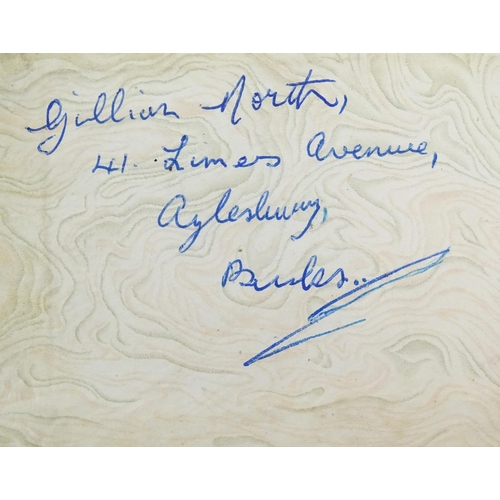 Gillian North,
41. Limes Avenue,
Aylesbury,
Bucks..